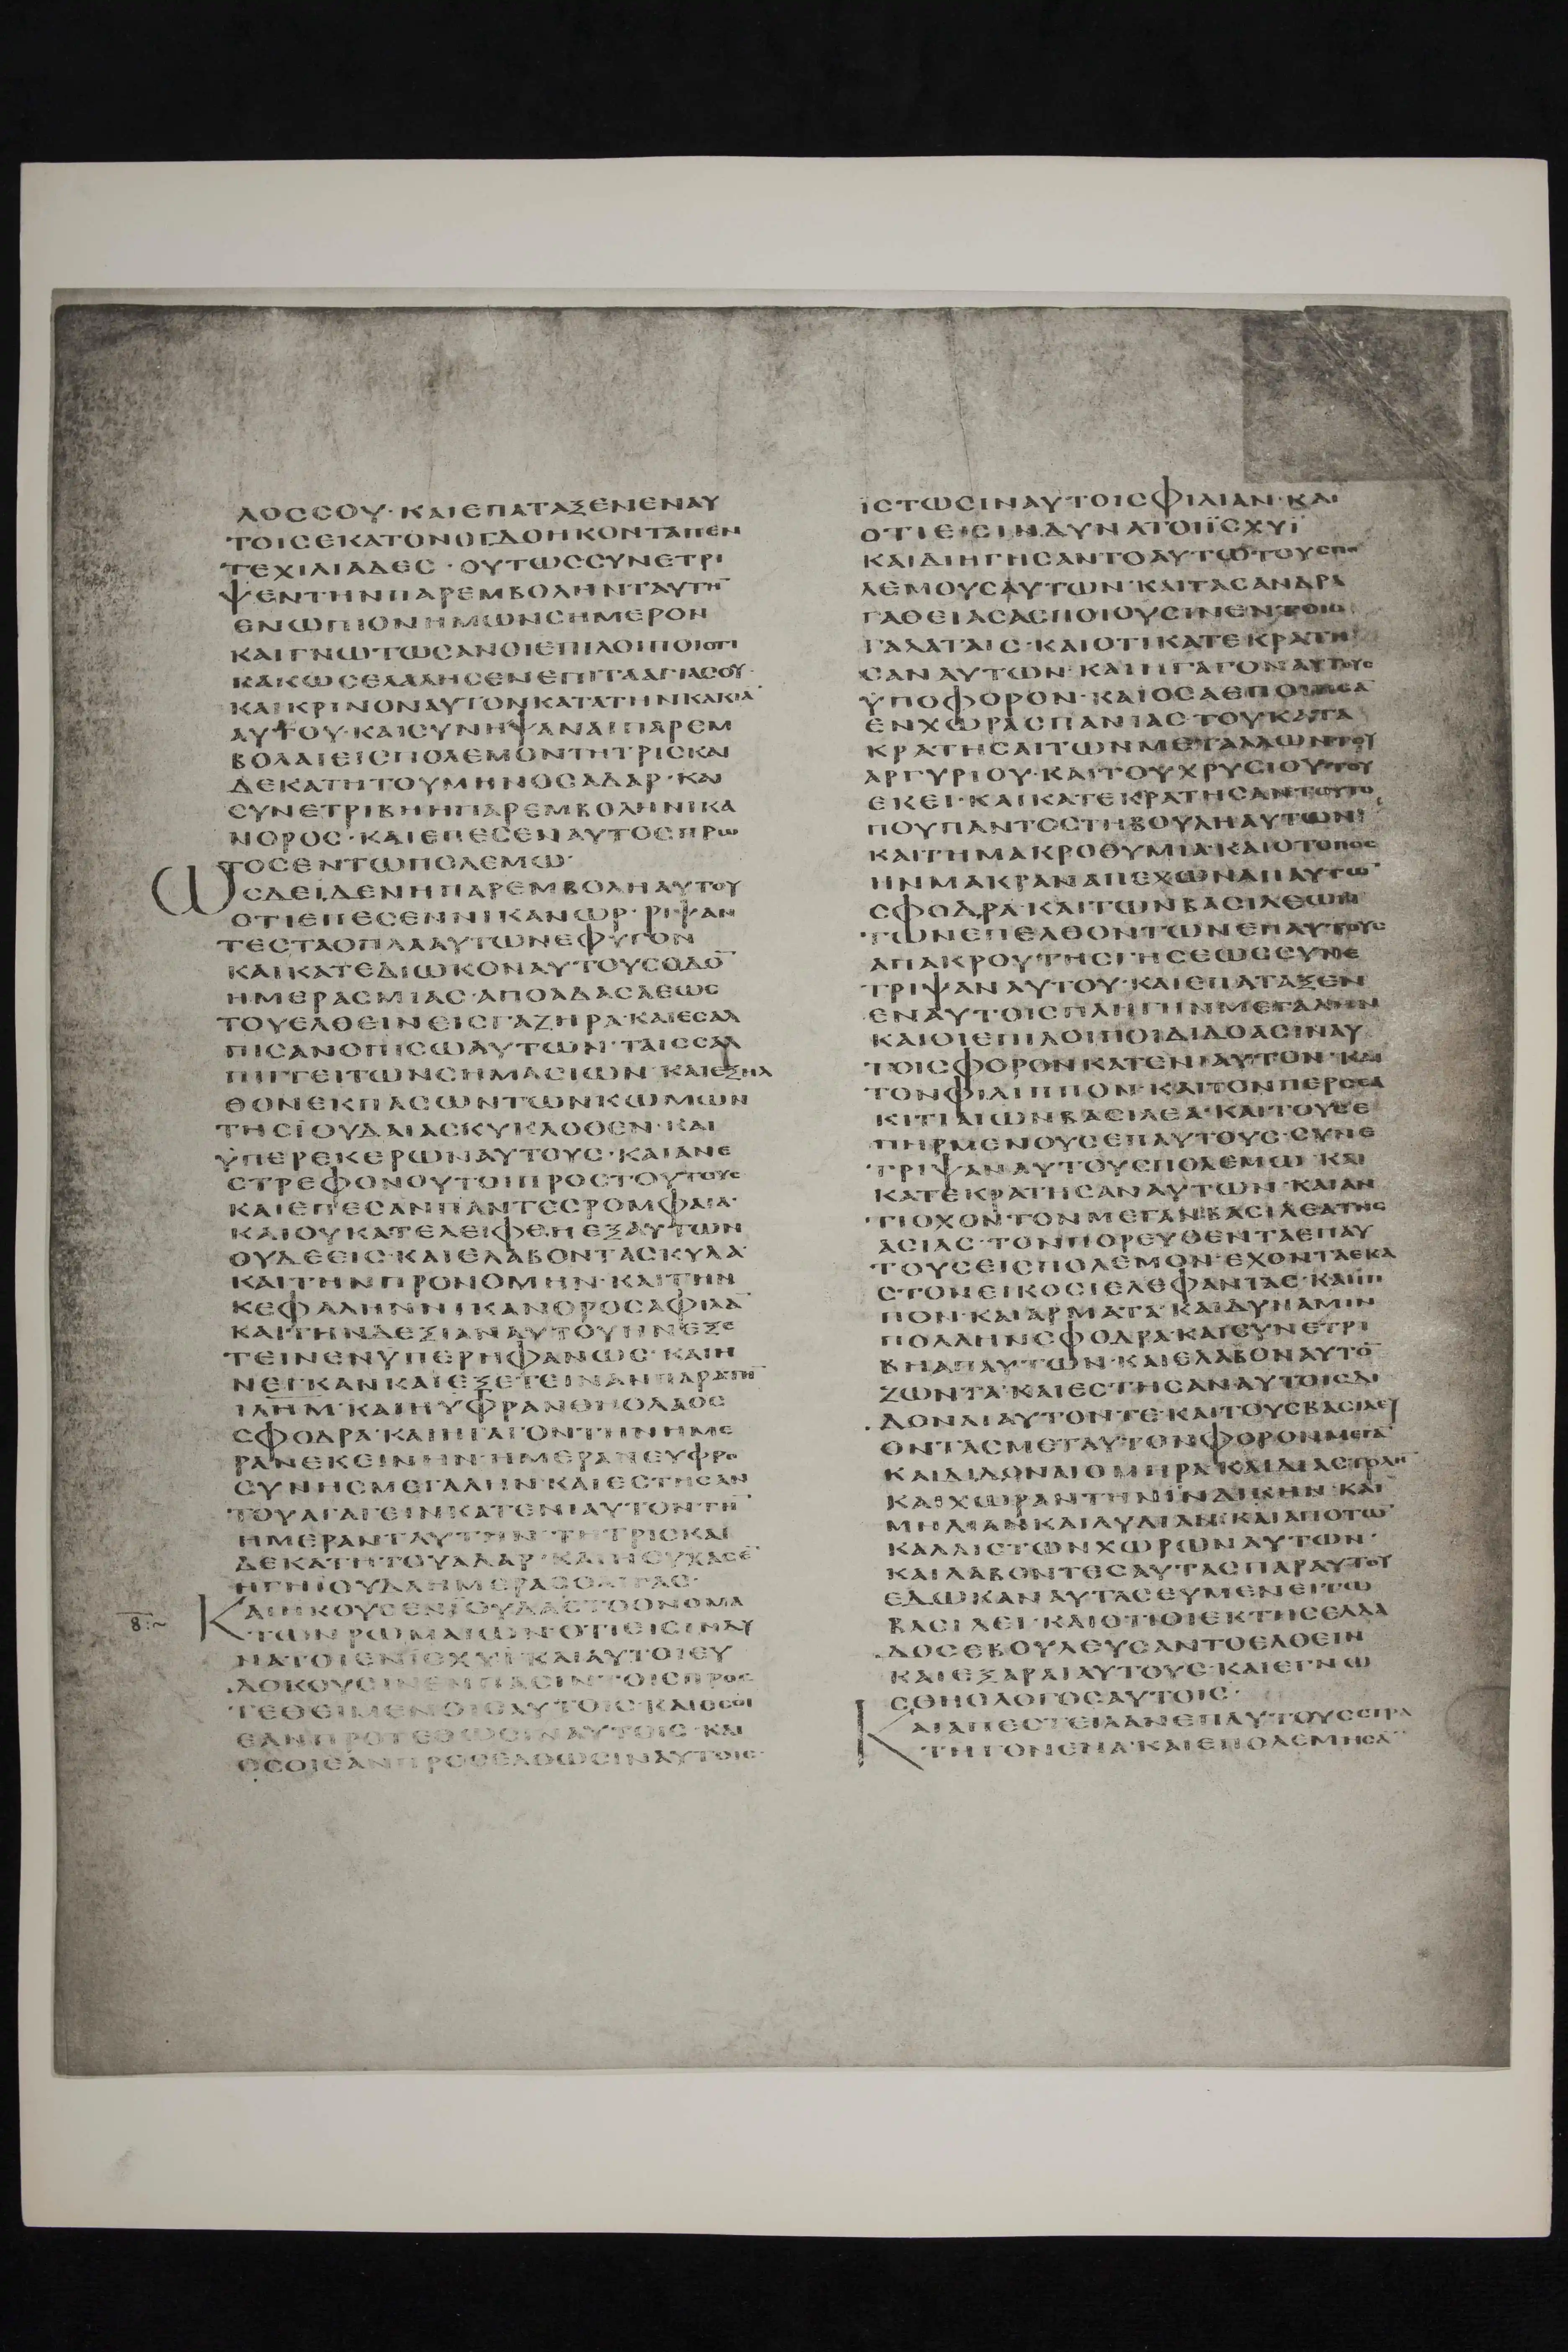 ΛΟССΟΥ·ΚΑΙΕΠΑΤΑΞΕΝΕΝΑΥ
ΤΟΙСΕΚΑΤΟΝΟΓΔΟΗΚΟΝΤΑΠΕΝ
ΤΕΧΙΛΙΑΔΕС·ΟΥΤΩССΥΝΕΤΡΙ
ΨΕΝΤΗΝΠΑΡΕΜΒΟΛΗΝΤΑΥΤΗ̅
ΕΝΩΠΙΟΝΗΜΩΝСΗΜΕΡΟΝ
ΚΑΙΓΝΩΤΩСΑΝΟΙΕΠΙΛΟΙΠΟΙΟΤΙ
ΚΑΚΩСΕΛΑΛΗСΕΝΕΠΙΤΑΑΓΙΑСΟΥ·
ΚΑΙΚΡΙΝΟΝΑΥΤΟΝΚΑΤΑΤΗΝΚΑΚΙΑ̅
ΑΥΤΟΥ·ΚΑΙСΥΝΗΨΑΝΑΙΠΑΡΕΜ
ΒΟΛΑΙΕΙСΠΟΛΕΜΟΝΤΗΤΡΙСΚΑΙ
ΔΕΚΑΤΗΤΟΥΜΗΝΟСΑΔΑΡ·ΚΑΙ
СΥΝΕΤΡΙΒΗΗΠΑΡΕΜΒΟΛΗΝΙΚΑ
ΝΟΡΟС·ΚΑΙΕΠΕСΕΝΑΥΤΟСΠΡΩ
ΤΟСΕΝΤΩΠΟΛΕΜΩ·
ΩСΔΕΙΔΕΝΗΠΑΡΕΜΒΟΛΗΑΥΤΟΥ
ΟΤΙΕΠΕСΕΝΝΙΚΑΝΩΡ·ΡΙΨΑΝ
ΤΕСΤΑΟΠΛΑΑΥΤΩΝΕΦΥΓΟΝ
ΚΑΙΚΑΤΕΔΙΩΚΟΝΑΥΤΟΥСΟΔΟ̅
ΗΜΕΡΑСΜΙΑС·ΑΠΟΑΔΑСΑΕΩС
ΤΟΥΕΛΘΕΙΝΕΙСΓΑΖΗΡΑ·ΚΑΙΕСΑΛ
ΠΙСΑΝΟΠΙСΩΑΥΤΩΝ·ΤΑΙССΑΛ
ΠΙΓΓΕΙΤΩΝСΗΜΑСΙΩΝ·ΚΑΙΕΞΗΛ
ΘΟΝΕΚΠΑСΩΝΤΩΝΚΩΜΩΝ
ΤΗСΪΟΥΔΑΙΑСΚΥΚΛΟΘΕΝ·ΚΑΙ
ΫΠΕΡΕΚΕΡΩΝΑΥΤΟΥС·ΚΑΙΑΝΕ
СΤΡΕΦΟΝΟΥΤΟΙΠΡΟСΤΟΥΤΟΥС
ΚΑΙΕΠΕСΑΝΠΑΝΤΕСΡΟΜΦΑΙΑ·
ΚΑΙΟΥΚΑΤΕΛΕΙΦΘΗΕΞΑΥΤΩΝ
ΟΥΔΕΕΙС·ΚΑΙΕΛΑΒΟΝΤΑСΚΥΛΑ·
ΚΑΙΤΗΝΠΡΟΝΟΜΗΝ·ΚΑΙΤΗΝ
ΚΕΦΑΛΗΝΝΙΚΑΝΟΡΟСΑΦΙΛΑ̅
ΚΑΙΤΗΝΔΕΞΙΑΝΑΥΤΟΥΗΝΕΞΕ
ΤΕΙΝΕΝΫΠΕΡΗΦΑΝΩС·ΚΑΙΗ
ΝΕΓΚΑΝΚΑΙΕΞΕΤΕΙΝΑΝΠΑΡΑΤΗ̅
ΙΛΗΜ·ΚΑΙΗΥΦΡΑΝΘΗΟΛΑΟС
СΦΟΔΡΑ·ΚΑΙΗΓΑΓΟΝΤΗΝΗΜΕ
ΡΑΝΕΚΕΙΝΗΝ·ΗΜΕΡΑΝΕΥΦΡΟ
СΥΝΗСΜΕΓΑΛΗΝ·ΚΑΙΕСΤΗСΑΝ
ΤΟΥΑΓΑΓΕΙΝΚΑΤΕΝΙΑΥΤΟΝΤΗ̅
ΗΜΕΡΑΝΤΑΥΤΗΝ·ΤΗΤΡΙСΚΑΙ
ΔΕΚΑΤΗΤΟΥΑΔΑΡ·ΚΑΙΗСΥΧΑСΕ̅
ΗΓΗΪΟΥΔΑΗΜΕΡΑСΟΛΙΓΑС·
ΚΑΙΗΚΟΥСΕΝΪΟΥΔΑСΤΟΟΝΟΜΑ
ΤΩΝΡΩΜΑΙΩΝ·ΟΤΙΕΙСΙΝΔΥ
ΝΑΤΟΙΕΝΙСΧΥΪ·ΚΑΙΑΥΤΟΙΕΥ
ΔΟΚΟΥСΙΝΕΝΠΑСΙΝΤΟΙСΠΡΟС
ΤΕΘΕΙΜΕΝΟΙСΑΥΤΟΙС·ΚΑΙΟСΟΙ
ΕΑΝΠΡΟΤΕΘΩСΙΝΑΥΤΟΙС·ΚΑΙ
ΟСΟΙΕΑΝΠΡΟСΕΛΘΩСΙΝΑΥΤΟΙС·
ΪСΤΩСΙΝΑΥΤΟΙСΦΙΛΙΑΝ·ΚΑΙ
ΟΤΙΕΙСΙΝΔΥΝΑΤΟΙΪСΧΥΪ
ΚΑΙΔΙΗΓΗСΑΝΤΟΑΥΤΩΤΟΥСΠΟ
ΛΕΜΟΥСΑΥΤΩΝ·ΚΑΙΤΑСΑΝΔΡΑ
ΓΑΘΕΙΑСΑСΠΟΙΟΥСΙΝΕΝΤΟΙС
ΓΑΛΑΤΑΙС·ΚΑΙΟΤΙΚΑΤΕΚΡΑΤΗ
СΑΝΑΥΤΩΝ·ΚΑΙΗΓΑΓΟΝΑΥΤΟΥС
ΫΠΟΦΟΡΟΝ·ΚΑΙΟСΑΕΠΟΙΗСΑ̅
ΕΝΧΩΡΑСΠΑΝΙΑС·ΤΟΥΚΑΤΑ
ΚΡΑΤΗСΑΙΤΩΝΜΕΤΑΛΛΩΝΤΟΥ
ΑΡΓΥΡΙΟΥ·ΚΑΙΤΟΥΧΡΥСΙΟΥΤΟΥ
ΕΚΕΙ·ΚΑΙΚΑΤΕΚΡΑΤΗСΑΝΤΟΥΤΟ
ΠΟΥΠΑΝΤΟСΤΗΒΟΥΛΗΑΥΤΩΝ
ΚΑΙΤΗΜΑΚΡΟΘΥΜΙΑ·ΚΑΙΟΤΟΠΟС
ΗΝΜΑΚΡΑΝΑΠΕΧΩΝΑΠΑΥΤΩ̅
СΦΟΔΡΑ·ΚΑΙΤΩΝΒΑСΙΛΕΩΝ
ΤΩΝΕΠΕΛΘΟΝΤΩΝΕΠΑΥΤΟΥС
ΑΠΑΚΡΟΥΤΗСΓΗСΕΩССΥΝΕ
ΤΡΙΨΑΝΑΥΤΟΥ·ΚΑΙΕΠΑΤΑΞΕΝ
ΕΝΑΥΤΟΙСΠΛΗΓΗΝΜΕΓΑΛΗΝ
ΚΑΙΟΙΕΠΙΛΟΙΠΟΙΔΙΔΟΑСΙΝΑΥ
ΤΟΙСΦΟΡΟΝΚΑΤΕΝΙΑΥΤΟΝ·ΚΑΙ
ΤΟΝΦΙΛΙΠΠΟΝ·ΚΑΙΤΟΝΠΕΡСΕΑ
ΚΙΤΙΑΙΩΝΒΑСΙΛΕΑ·ΚΑΙΤΟΥСΕ
ΠΗΡΜΕΝΟΥСΕΠΑΥΤΟΥС·СΥΝΕ
ΤΡΙΨΑΝΑΥΤΟΥСΠΟΛΕΜΩ·ΚΑΙ
ΚΑΤΕΚΡΑΤΗСΑΝΑΥΤΩΝ·ΚΑΙΑΝ
ΤΙΟΧΟΝΤΟΝΜΕΓΑΝΒΑСΙΛΕΑΤΗС
ΑСΙΑС·ΤΟΝΠΟΡΕΥΘΕΝΤΑΕΠΑΥ
ΤΟΥСΕΙСΠΟΛΕΜΟΝ·ΕΧΟΝΤΑΕΚΑ
СΤΟΝΕΙΚΟСΙΕΛΕΦΑΝΤΑС·ΚΑΙΙΠ
ΠΟΝ·ΚΑΙΑΡΜΑΤΑ·ΚΑΙΔΥΝΑΜΙΝ
ΠΟΛΛΗΝСΦΟΔΡΑ·ΚΑΙСΥΝΕΤΡΙ
ΒΗΑΠΑΥΤΩΝ·ΚΑΙΕΛΑΒΟΝΑΥΤΟ̅
ΖΩΝΤΑ·ΚΑΙΕСΤΗСΑΝΑΥΤΟΙСΔΙ
ΔΟΝΑΙΑΥΤΟΝΤΕ·ΚΑΙΤΟΥСΒΑСΙΛΕΥ
ΟΝΤΑСΜΕΤΑΥΤΟΝΦΟΡΟΝΜΕΓΑ̅
ΚΑΙΔΙΔΟΝΑΙΟΜΗΡΑ·ΚΑΙΔΙΑСΤΟΛΗ̅
ΚΑΙΧΩΡΑΝΤΗΝΪΝΔΙΚΗΝ·ΚΑΙ
ΜΗΔΙΑΝΚΑΙΛΥΔΙΑΝ·ΚΑΙΑΠΟΤΩ̅
ΚΑΛΛΙСΤΩΝΧΩΡΩΝΑΥΤΩΝ·
ΚΑΙΛΑΒΟΝΤΕСΑΥΤΑСΠΑΡΑΥΤΟΥ
ΕΔΩΚΑΝΑΥΤΑСΕΥΜΕΝΕΙΤΩ
ΒΑСΙΛΕΙ·ΚΑΙΟΤΙΟΙΕΚΤΗСΕΛΛΑ
ΔΟСΕΒΟΥΛΕΥСΑΝΤΟΕΛΘΕΙΝ
ΚΑΙΕΞΑΡΑΙΑΥΤΟΥС·ΚΑΙΕΓΝΩ
СΘΗΟΛΟΓΟСΑΥΤΟΙС·
ΚΑΙΑΠΕСΤΕΙΛΑΝΕΠΑΥΤΟΥССΤΡΑ
ΤΗΓΟΝΕΝΑ·ΚΑΙΕΠΟΛΕΜΗСΑ̅